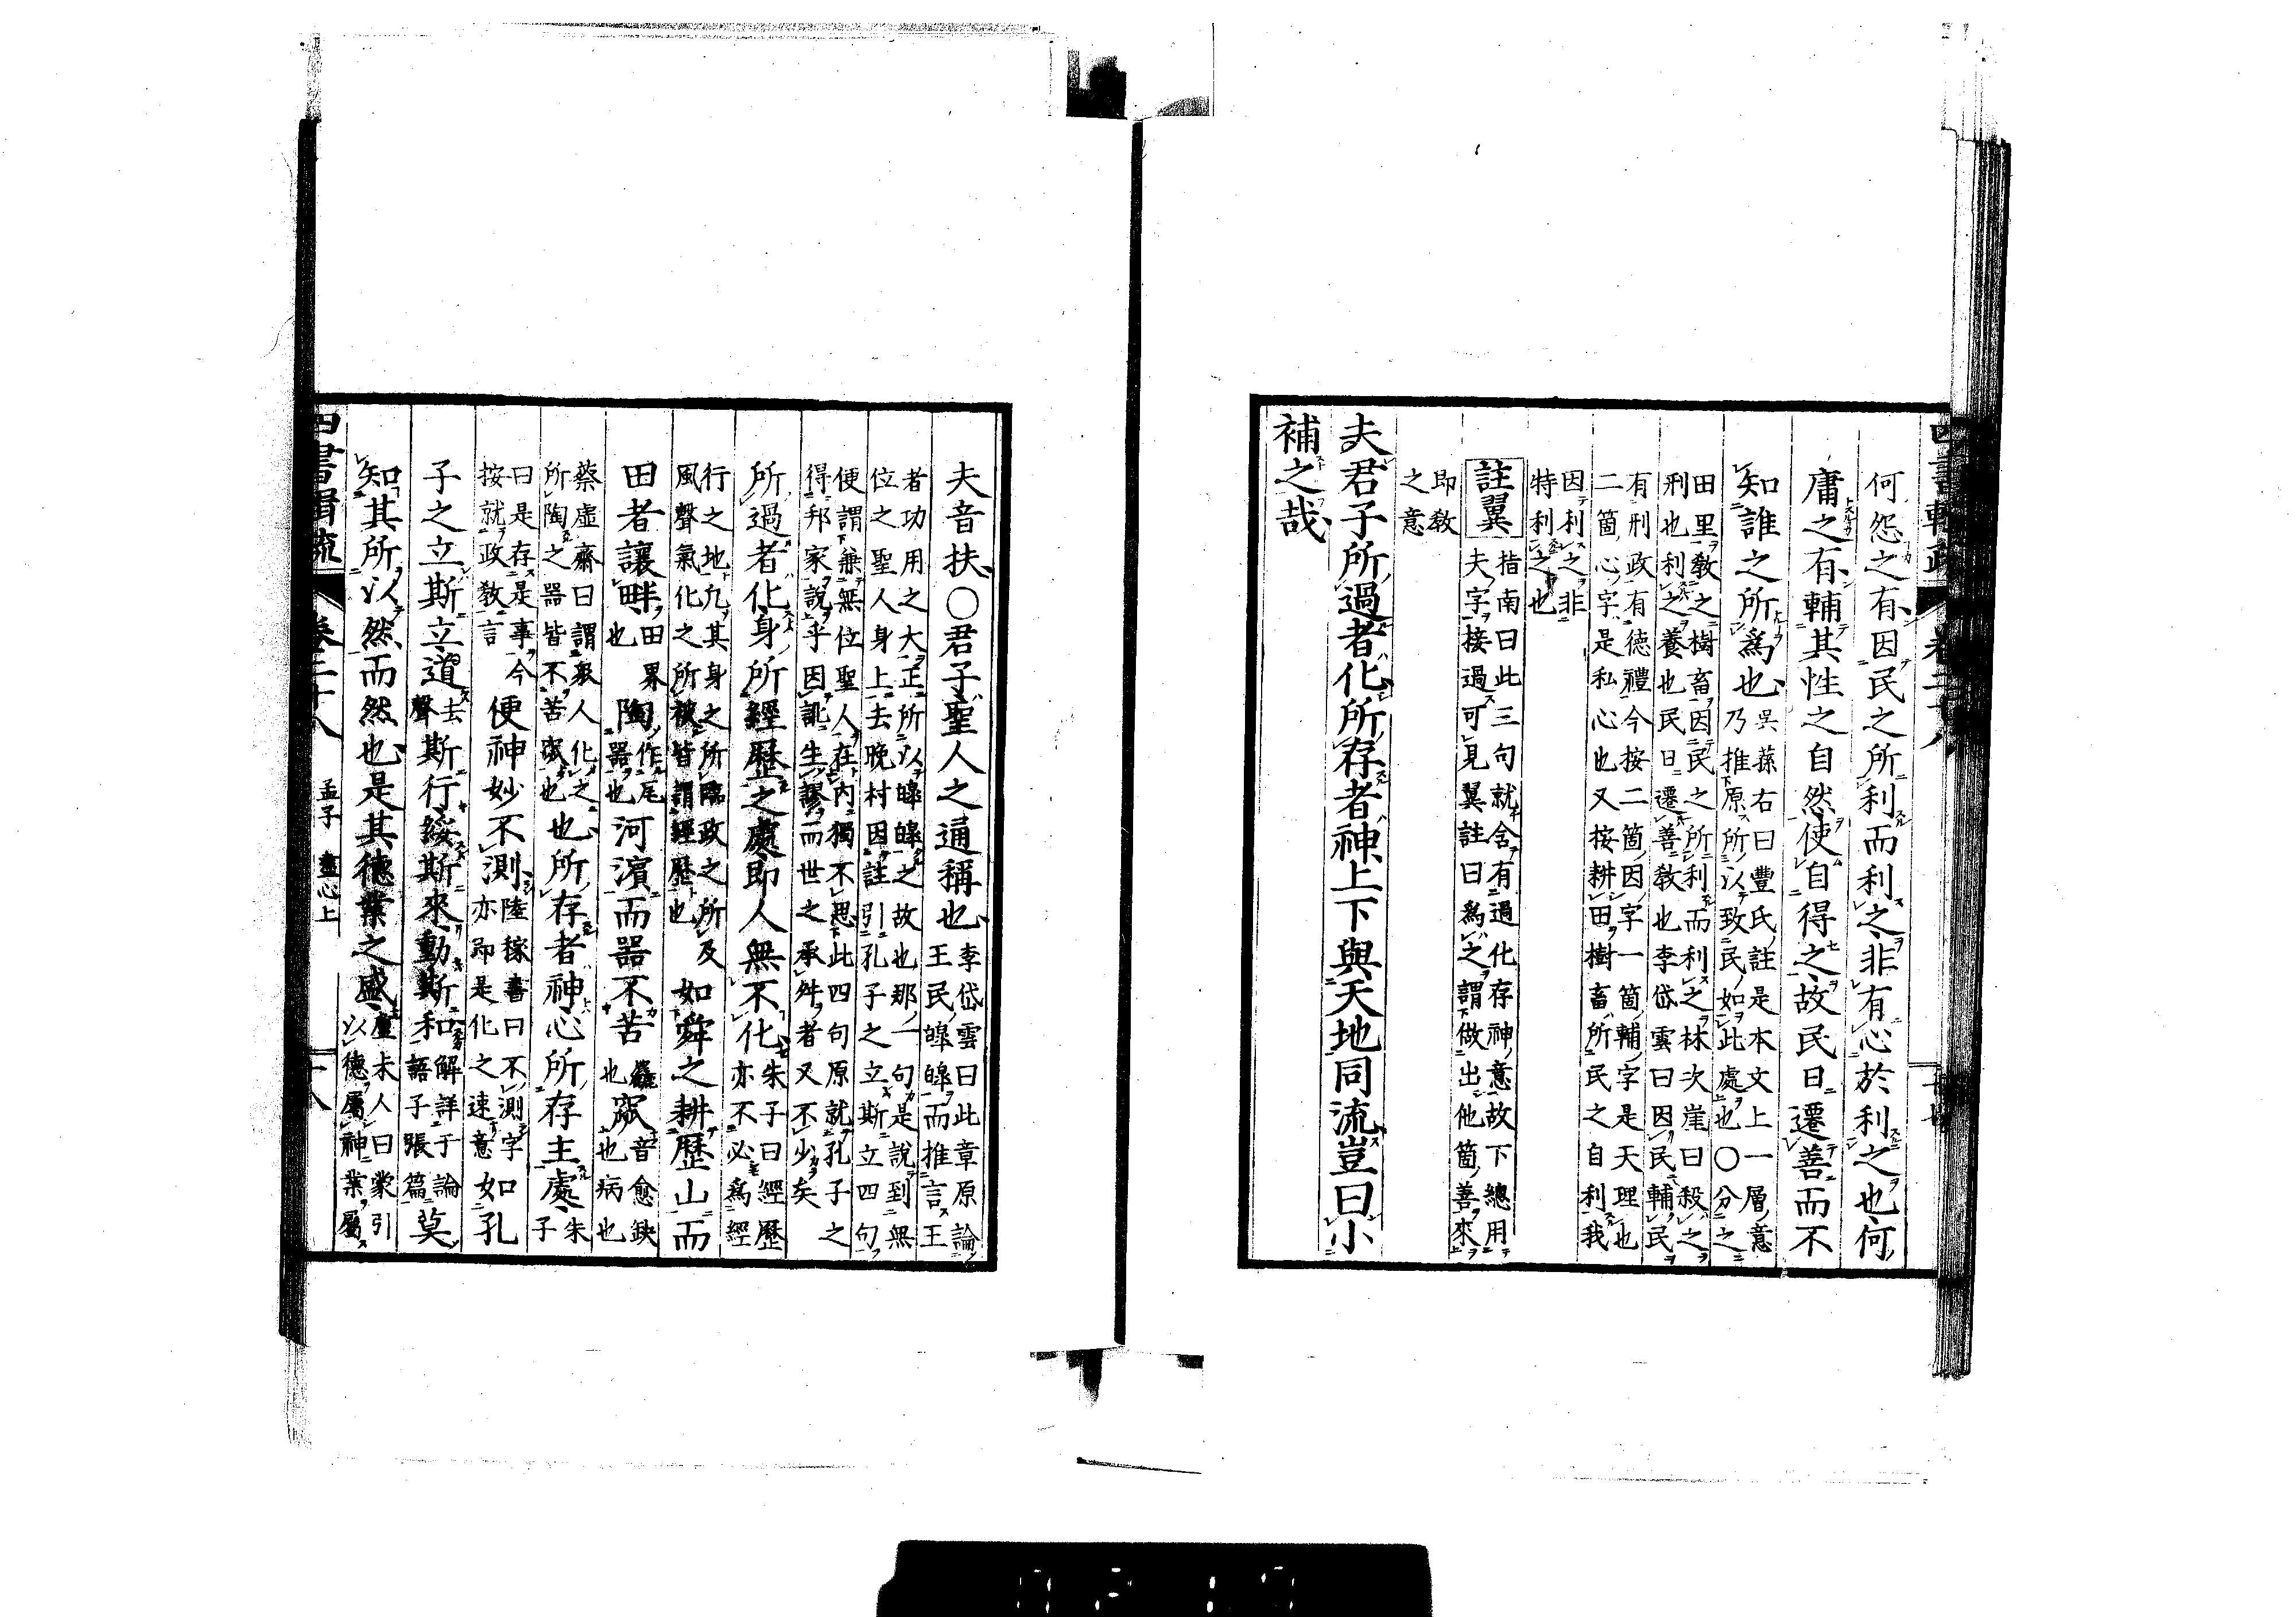 何怨之有因民之所利而利之非有心於利之也何
庸之有輔其性之自然使自得之故民日遷善而不
知誰之所爲也吳蓀右曰豐氏註是本文上一層意乃推原所以致民如此處也○分之
田里敎之樹畜因民之所利而利之林次崖曰殺之
刑也利之養也民日遷善敎也李岱雲曰因民輔民
有刑政有德禮今按二箇因字一箇輔字是天理也
二箇心字是私心也又按耕田樹畜所民之自利我
因利之非
特利之也
註翼指南曰此三句就含有過化存神意故下總用夫字接過可見翼註曰爲之謂做出他箇善來
即敎
之意
夫君子所過者化所存者神上下與天地同流豈曰小
補之哉
夫音扶○君子聖人之通稱也李岱雲曰此章原論王民皥皥而推言王
者功用之大正所以皥皥之故也那一句是說到無
位之聖人身上去晚村因註引孔子之立斯立四句
便謂兼無位聖人在内獨不思此四句原就孔子之
得邦家說乎因訛生謬而世之承舛者又不少矣
所過者化身所經歷之處即人無不化朱子曰經歷亦不必爲經
行之地凡其身之所臨政之所及風聲氣化之所被皆謂經歷也如舜之耕歷山而
田者讓畔田界也陶作瓦器也河濱而器不苦麤也窳音愈鈌也病也
蔡虛齋曰謂衆人化之所陶之器皆不苦窳也也所存者神心所存主處朱子
曰是存是事今按就政敎言便神妙不測陸稼書曰不測字亦即是化之速意如孔
子之立斯立道去聲斯行綏斯來動斯和解詳于論語子張篇莫
知其所以然而然也是其德業之盛盧未人曰蒙引以德屬神業屬
四書輯疏 卷二十八 孟子 盡心上 十八